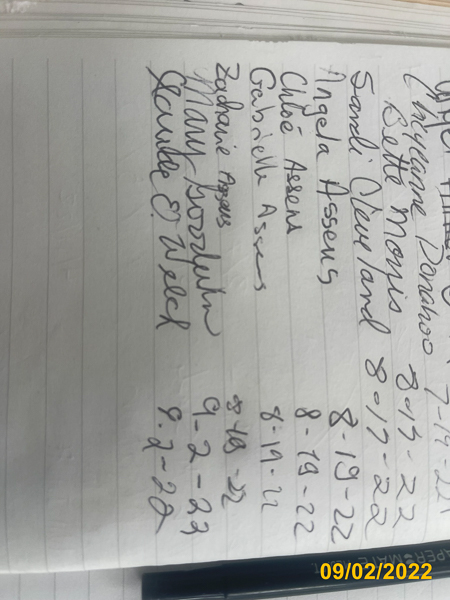 Donahoo 7-19-22
Bette Morris 8-17-22
Sandi Cleveland 8-17-22
Angela Assens 8-19-22
Chloé Assens 8-19-22
Gabrielle Assens 8-19-22
Zacharie Assens 8-19-22
Mary 9-2-22
E. Welch 9-2-22
PAPER MATE
09/02/2022